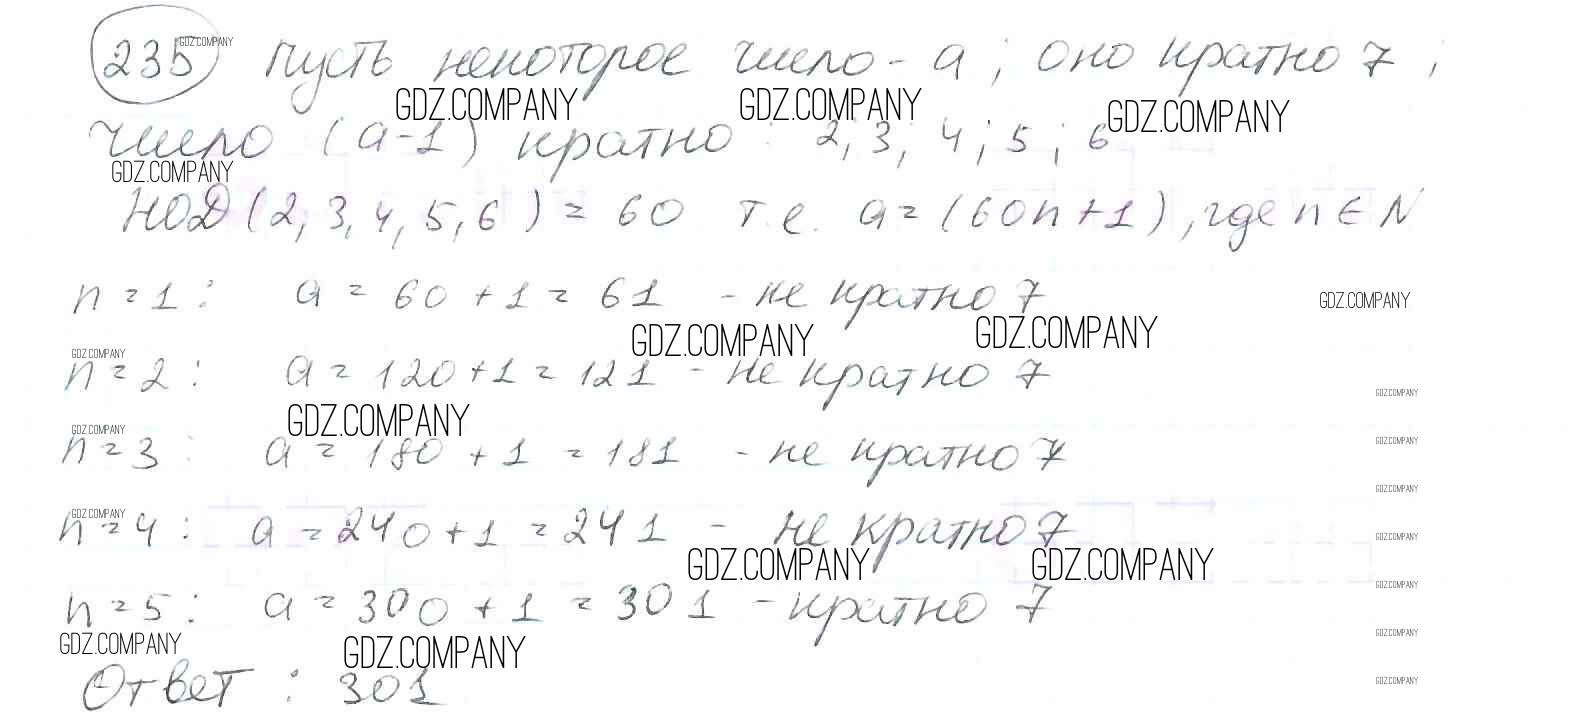 235 GDZ.COMPANY Пусть некоторое число - a ; оно кратно 7 ;
GDZ.COMPANY GDZ.COMPANY GDZ.COMPANY
число (a-1) кратно : 2; 3; 4; 5; 6
GDZ.COMPANY
НОД (2, 3, 4, 5, 6) = 60 т.е. a = (60n+1), где n ∈ N
n = 1 : a = 60 + 1 = 61 - не кратно 7 GDZ.COMPANY
GDZ.COMPANY GDZ.COMPANY
GDZ.COMPANY
n = 2 : a = 120+1 = 121 - не кратно 7
GDZ.COMPANY
GDZ.COMPANY
GDZ.COMPANY
GDZ.COMPANY
n = 3 : a = 180 + 1 = 181 - не кратно 7
GDZ.COMPANY
GDZ.COMPANY
n = 4 : a = 240+1 = 241 - не кратно 7
GDZ.COMPANY
GDZ.COMPANY GDZ.COMPANY
GDZ.COMPANY
n = 5 : a = 300 + 1 = 301 - кратно 7
GDZ.COMPANY
GDZ.COMPANY GDZ.COMPANY
Ответ : 301
GDZ.COMPANY